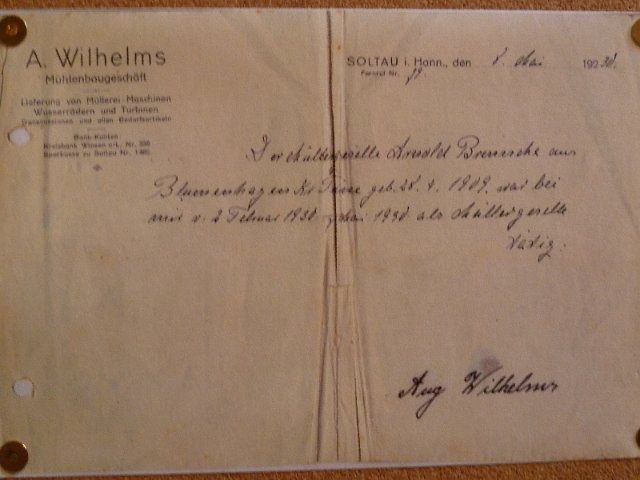 A. Wilhelms
Mühlenbaugeschäft
Lieferung von Müllerei-Maschinen
Wasserrädern und Turbinen
Transmissionen und allen Bedarfsartikeln
Bank-Konten:
Kreisbank Winsen a/L., Nr. 330
Sparkasse zu Soltau Nr.
SOLTAU i. Hann., den 8. Mai 1930.
Fernruf Nr.
Der Müllergeselle Arnold aus
Blumenhagen Kr Peine geb. 28. 4. 1909. war bei
mir v. 2 Februar 1930 Mai 1930 als Müllergeselle
tätig.
Aug Wilhelms